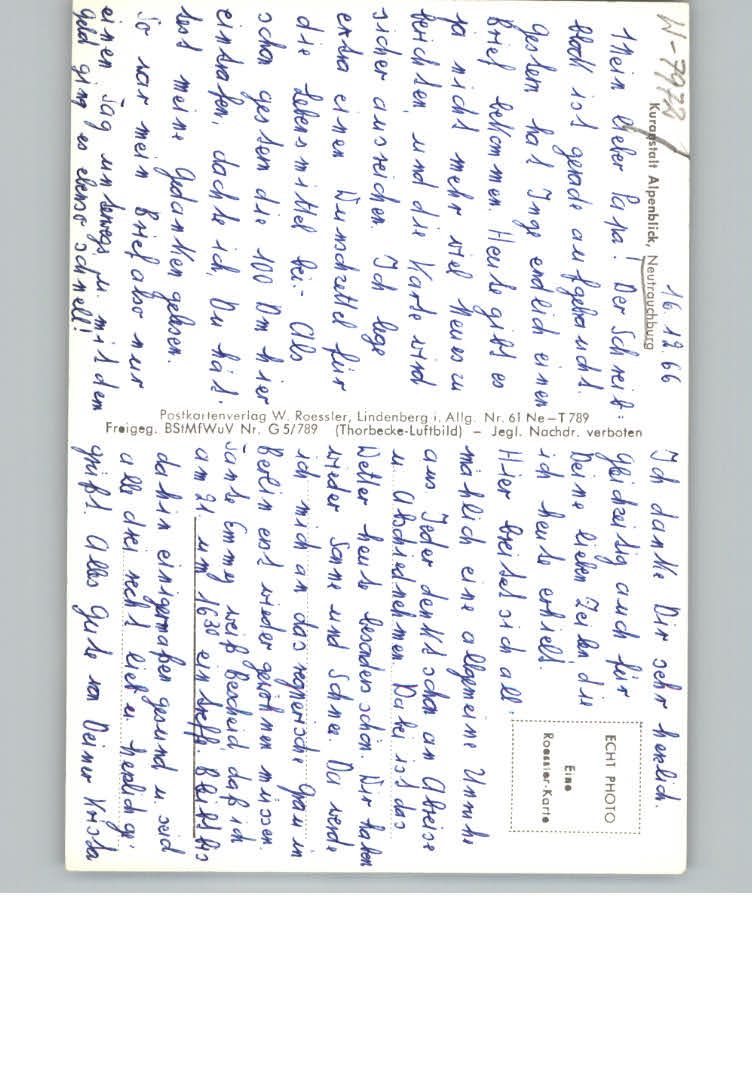 W-7978
Kuranstalt Alpenblick, Neutrauchburg
16.12.66
Mein lieber Papa! Der Schreib-
block ist gerade aufgebraucht.
Gestern hat Inge endlich einen
Brief bekommen. Heute gibt es
ja nicht mehr viel Neues zu
berichten, und die Karte wird
sicher ausreichen. Ich lege
extra einen Wunschzettel für
die Lebensmittel bei.- Als
schon gestern die 100 Dm hier
eintrafen, dachte ich, Du hät-
test meine Gedanken gelesen.
So war mein Brief also nur
einen Tag unterwegs u. mit dem
Geld ging es ebenso schnell!
Postkartenverlag W. Roessler, Lindenberg i. Allg. Nr. 61 Ne—T 789
Freigeg. BStMfWuV Nr. G 5/789 (Thorbecke-Luftbild) — Jegl. Nachdr. verboten
Ich danke Dir sehr herzlich.
Gleichzeitig auch für
Deine lieben Zeilen die
ich heute erhielt.
Hier breitet sich all-
mählich eine allgemeine Unruhe
aus. Jeder denkt schon an Abreise
u. Abschiednehmen. Dabei ist das
Wetter heute besonders schön. Wir haben
wieder Sonne und Schnee. Da werde
ich mich an das regnerische Grau in
Berlin erst wieder gewöhnen müssen.
Tante Emmy weiß Bescheid daß ich
am 21. um 16³⁰ eintreffe. Bleibt bis
dahin einigermaßen gesund u. seid
alle drei recht lieb u. herzlich ge-
grüßt. Alles Gute von Deiner Krista
ECHT PHOTO
Eine
Roessler-Karte